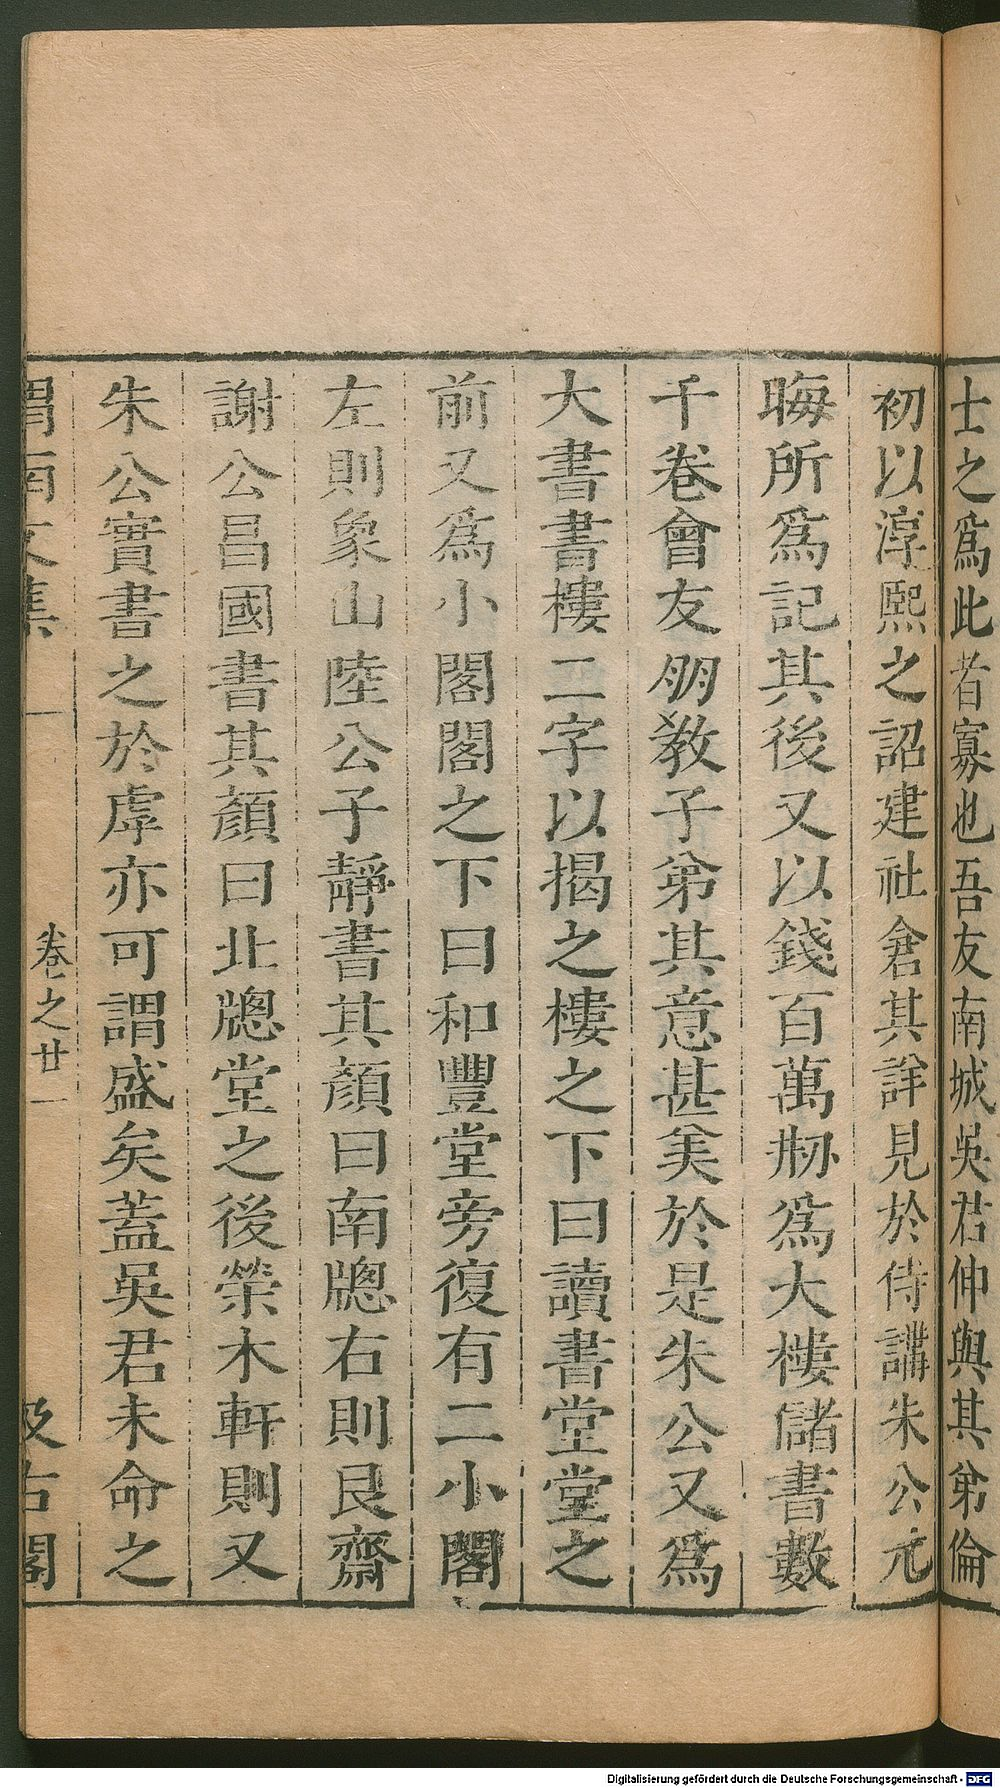 士之爲此者寡也吾友南城吳君伸與其弟倫
初以淳熙之詔建社倉其詳見於侍講朱公元
晦所爲記其後又以錢百萬刱爲大樓儲書數
千卷會友朋教子弟其意甚美於是朱公又爲
大書書樓二字以揭之樓之下曰讀書堂堂之
前又爲小閣閣之下曰和豐堂旁復有二小閣
左則象山陸公子靜書其顏曰南牕右則艮齋
謝公昌國書其顏曰北牕堂之後榮木軒則又
朱公實書之於虖亦可謂盛矣蓋吳君未命之
渭南文集 卷之廿一 汲古閣
Digitalisierung gefördert durch die Deutsche Forschungsgemeinschaft - DFG